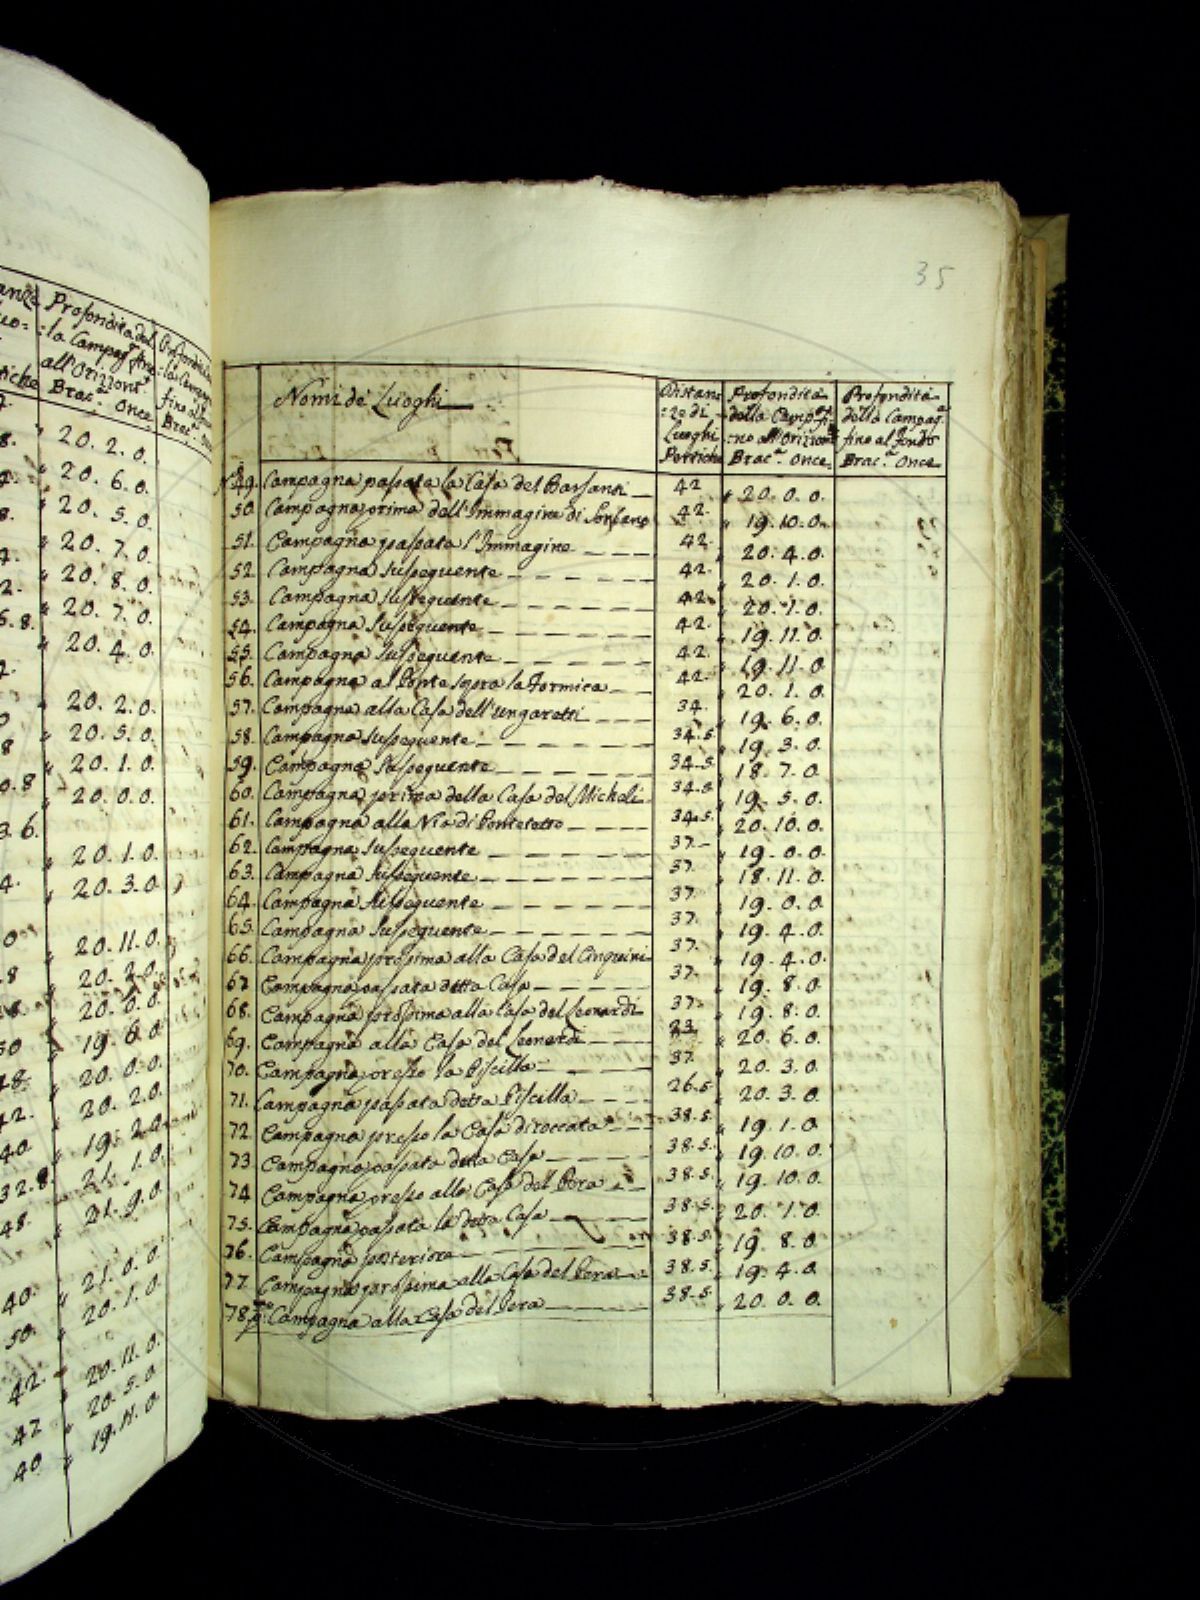 anza
Profondità del
la Campag.ª fino
all'Orizont.
Brac.ª Once
20. 2. 0.
20. 6. 0.
20. 5. 0.
20. 7. 0.
20. 8. 0.
20. 7. 0.
20. 4. 0.
20. 2. 0.
20. 5. 0.
20. 1. 0.
20. 0. 0.
20. 1. 0.
20. 3. 0
20. 11. 0.
20. 2. 0.
20. 0. 0.
19. 8. 0
20. 0. 0.
48. 20. 2. 0.
42. 19. 2. 0
40. 21. 1. 0.
32.8. 21. 9. 0.
48.
40. 21. 0. 0
50. 20. 1. 0.
42. 20. 11. 0.
47 20. 5. 0
40 19. 11. 0
35
Nomi de' Luoghi
Distan
:ze di
Luoghi
Pertiche
Profondità
della Camp.ª fi
:no all'Orizon
Brac.ª Once
Profondità
della Campag.ª
fino al fondo
Brac.ª Once
49. Campagna passata la Casa del Barsanti 42 20. 0. 0.
50. Campagna prima dell'Immagine di Sorbano 42. 19. 10. 0.
51. Campagna passata l'Immagine 42. 20. 4. 0.
52. Campagna susseguente 42. 20. 1. 0.
53. Campagna susseguente 42. 20. 1. 0.
54. Campagna susseguente 42. 19. 11. 0.
55. Campagna susseguente 42. 19. 11. 0
56. Campagna al Ponte sopra la Formica 42. 20. 1. 0.
57. Campagna alla Casa dell'Ungaretti 34. 19. 6. 0.
58. Campagna susseguente 34.5 19. 3. 0.
59. Campagna susseguente 34.5 18. 7. 0.
60. Campagna prima della Casa del Micheli 34.5 19. 5. 0.
61. Campagna alla Via di Pontetetto 34.5. 20. 10. 0.
62. Campagna susseguente 37. 19. 0. 0.
63. Campagna susseguente 37. 18. 11. 0.
64. Campagna susseguente 37. 19. 0. 0.
65. Campagna susseguente 37. 19. 4. 0.
66. Campagna prossima alla Casa del Cinquini 37. 19. 4. 0.
67 Campagna passata detta Casa 37. 19. 8. 0.
68. Campagna prossima alla Casa del Leonardi 37. 19. 8. 0.
69. Campagna alla Casa del Leonardi 23. 20. 6. 0.
70. Campagna presso la Piscilla 37. 20. 3. 0.
71. Campagna passata detta Piscilla 26.5 20. 3. 0.
72. Campagna presso la Casa diroccata 38.5. 19. 1. 0
73 Campagna passata detta Casa 38.5. 19. 10. 0.
74 Campagna presso alla Casa del Pera 38.5. 19. 10. 0.
75. Campagna passata la detta Casa 38.5. 20. 1. 0.
76. Campagna posteriore 38.5. 19. 8. 0.
77. Campagna prossima alla Casa del Pera 38.5. 19. 4. 0.
78. Campagna alla Casa del Pera 38.5. 20. 0. 0.